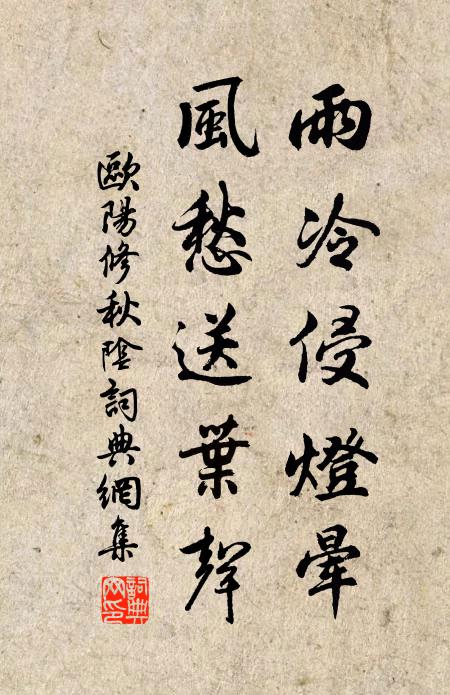 雨冷侵燈暈
風愁送葉聲
歐陽修秋陰詞典網集
詞典網印